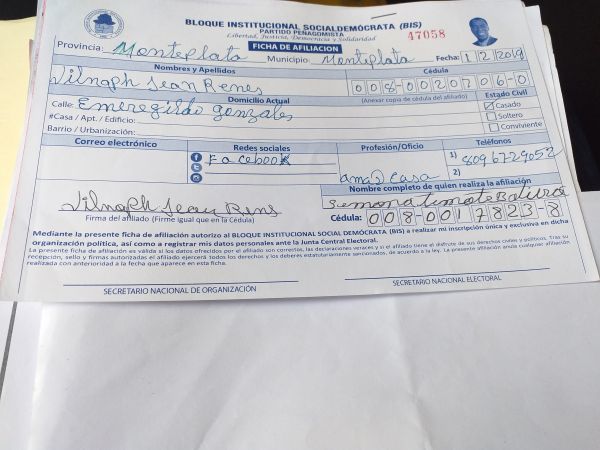 BLOQUE INSTITUCIONAL SOCIALDEMÓCRATA (BIS)
PARTIDO PEÑAGOMISTA
Libertad, Justicia, Democracia y Solidaridad
47058
FICHA DE AFILIACION
Provincia: Monteplata Municipio: Monteplata Fecha: 1/2/2019
Nombres y Apellidos Cédula
Vilnaph Jean Renes 008-0020706-0
Domicilio Actual (Anexar copia de cédula del afiliado) Estado Civil
Calle: Emeregildo gonzales
Casado
#Casa / Apt. / Edificio:
Soltero
Barrio / Urbanización:
Conviviente
Correo electrónico Redes sociales Profesión/Oficio Teléfonos
Facebook
1) 809 6729052
ama casa 2)
Nombre completo de quien realiza la afiliación
Vilnaph Jean Rens
Firma del afiliado (Firme igual que en la Cédula) Cédula: 008-0017823-8
Mediante la presente ficha de afiliación autorizo al BLOQUE INSTITUCIONAL SOCIAL DEMÓCRATA (BIS) a realizar mi inscripción única y exclusiva en dicha
organización política, así como a registrar mis datos personales ante la Junta Central Electoral.
La presente ficha de afiliación es válida si los datos ofrecidos por el afiliado son correctos, las declaraciones veraces y si el afiliado tiene el disfrute de sus derechos civiles y políticos. Tras su
recepción, sello y firmas autorizadas el afiliado ejercerá todos los derechos y los deberes estatutariamente sancionados, de acuerdo a la ley. La presente afiliación anula cualquier afiliación
realizada con anterioridad a la fecha que aparece en esta ficha.
SECRETARIO NACIONAL DE ORGANIZACIÓN SECRETARIO NACIONAL ELECTORAL